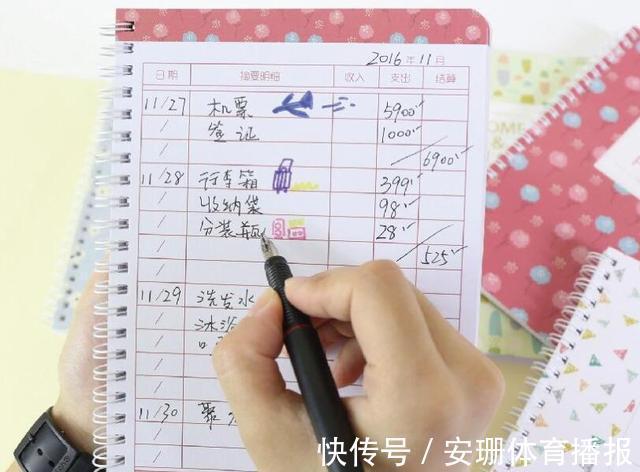 2016年11月
日期 摘要明细 收入 支出 结算
11/27 机票 5900
/ 签证 1000
/ 6900
11/28 行李箱 399
/ 收纳袋 98
/ 分装瓶 28
/ 525
/
11/29 洗发水
/
/
/
11/30 聚
/
快传号 / 安珊体育播报